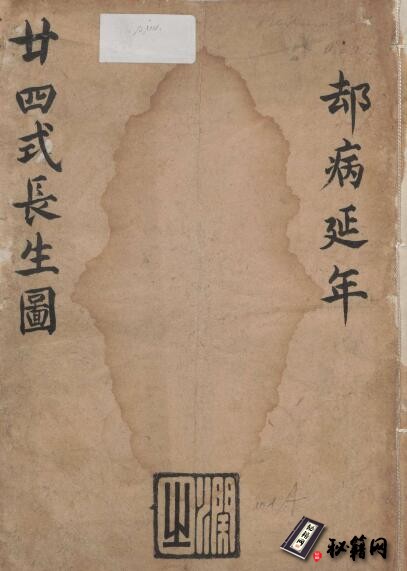 却病延年
廿四式長生圖
秘籍网